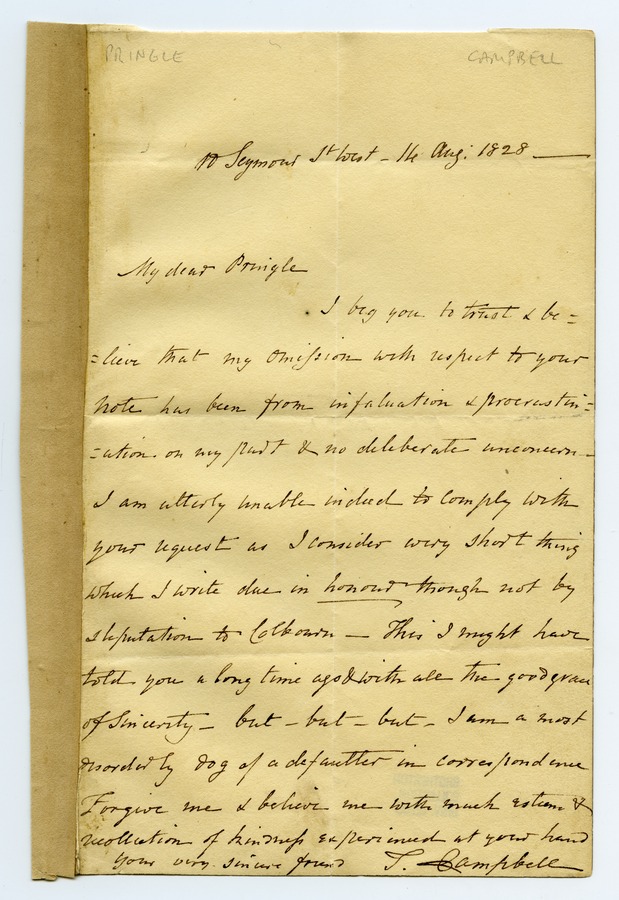 PRINGLE CAMPBELL
10 Seymour St West - 14 Aug. 1828
My dear Pringle
I beg you to trust & be=
=lieve that my omission with respect to your
note has been from infatuation & procrastin=
=ation on my part & no deliberate unconcern -
I am utterly unable indeed to comply with
your request as I consider every short thing
which I write due in honour though not by
stipulation to Colbourn - This I might have
told you a long time ago & with all the good grace
of Sincerity - but - but - but - I am a most
disorderly dog of a defaulter in correspondence
Forgive me & believe me with much esteem &
recollection of kindness experienced at your hand
Your very sincere friend T. Campbell